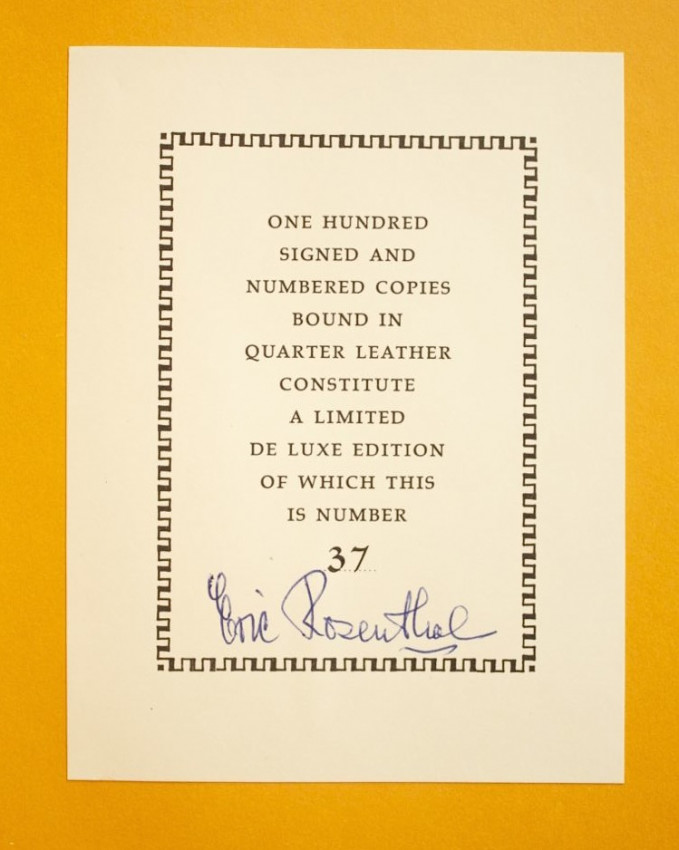 ONE HUNDRED
SIGNED AND
NUMBERED COPIES
BOUND IN
QUARTER LEATHER
CONSTITUTE
A LIMITED
DE LUXE EDITION
OF WHICH THIS
IS NUMBER
37
Eric Rosenthal